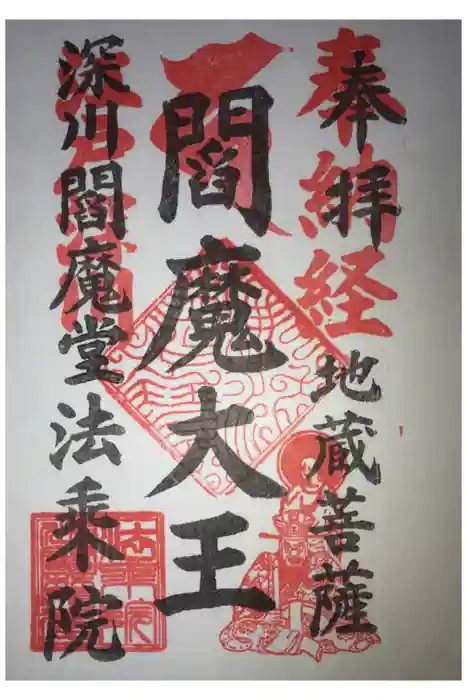 奉拝
奉納経
地蔵菩薩
閻魔大王
深川閻魔堂法乗院